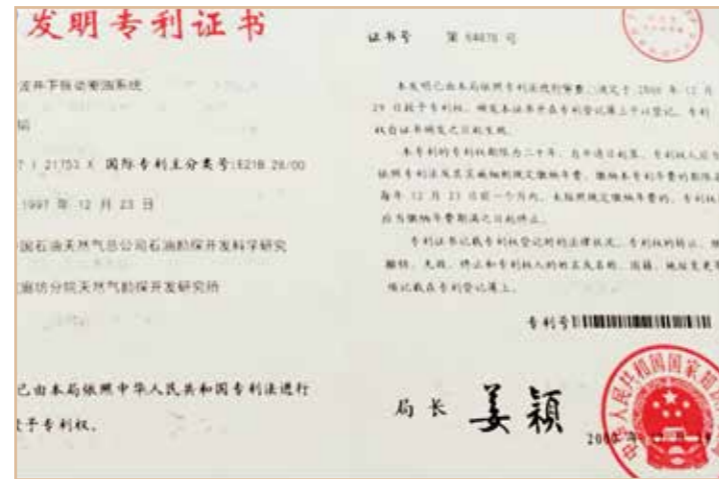 发明专利证书
波井下振动驱油系统
7 1 21753 X 国际专利主分类号:E21B 28/00
1997 年 12 月 23 日
国石油天然气总公司石油勘探开发科学研究
廊坊分院天然气勘探开发研究所
已由本局依照中华人民共和国专利法进行
授予专利权。
证书号 第 64876 号
本发明已由本局依照专利法进行审查,决定于 2000 年 12 月
29 日授予专利权,颁发本证书并在专利登记簿上予以登记。专利
权自证书颁发之日起生效。
本专利的专利权期限为二十年,自申请日起算。专利权人应当
依照专利法及其实施细则规定缴纳年费。缴纳本专利年费的期限是
每年 12 月 23 日前一个月内。未按照规定缴纳年费的,专利权
应当缴纳年费期满之日起终止。
专利证书记载专利权登记时的法律状况。专利权的转让、继
撤销、无效、终止和专利权人的姓名或名称、国籍、地址变更等
项记载在专利登记簿上。
专利号
局长 姜颖